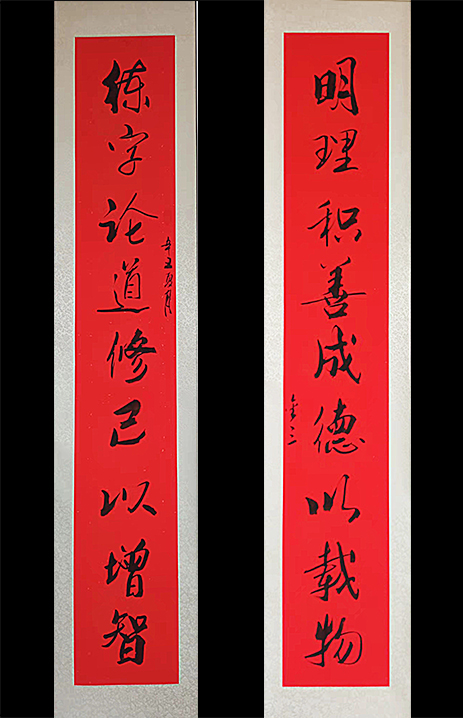 明理积善成德以载物
金三
辛丑夏月
练字论道修己以增智